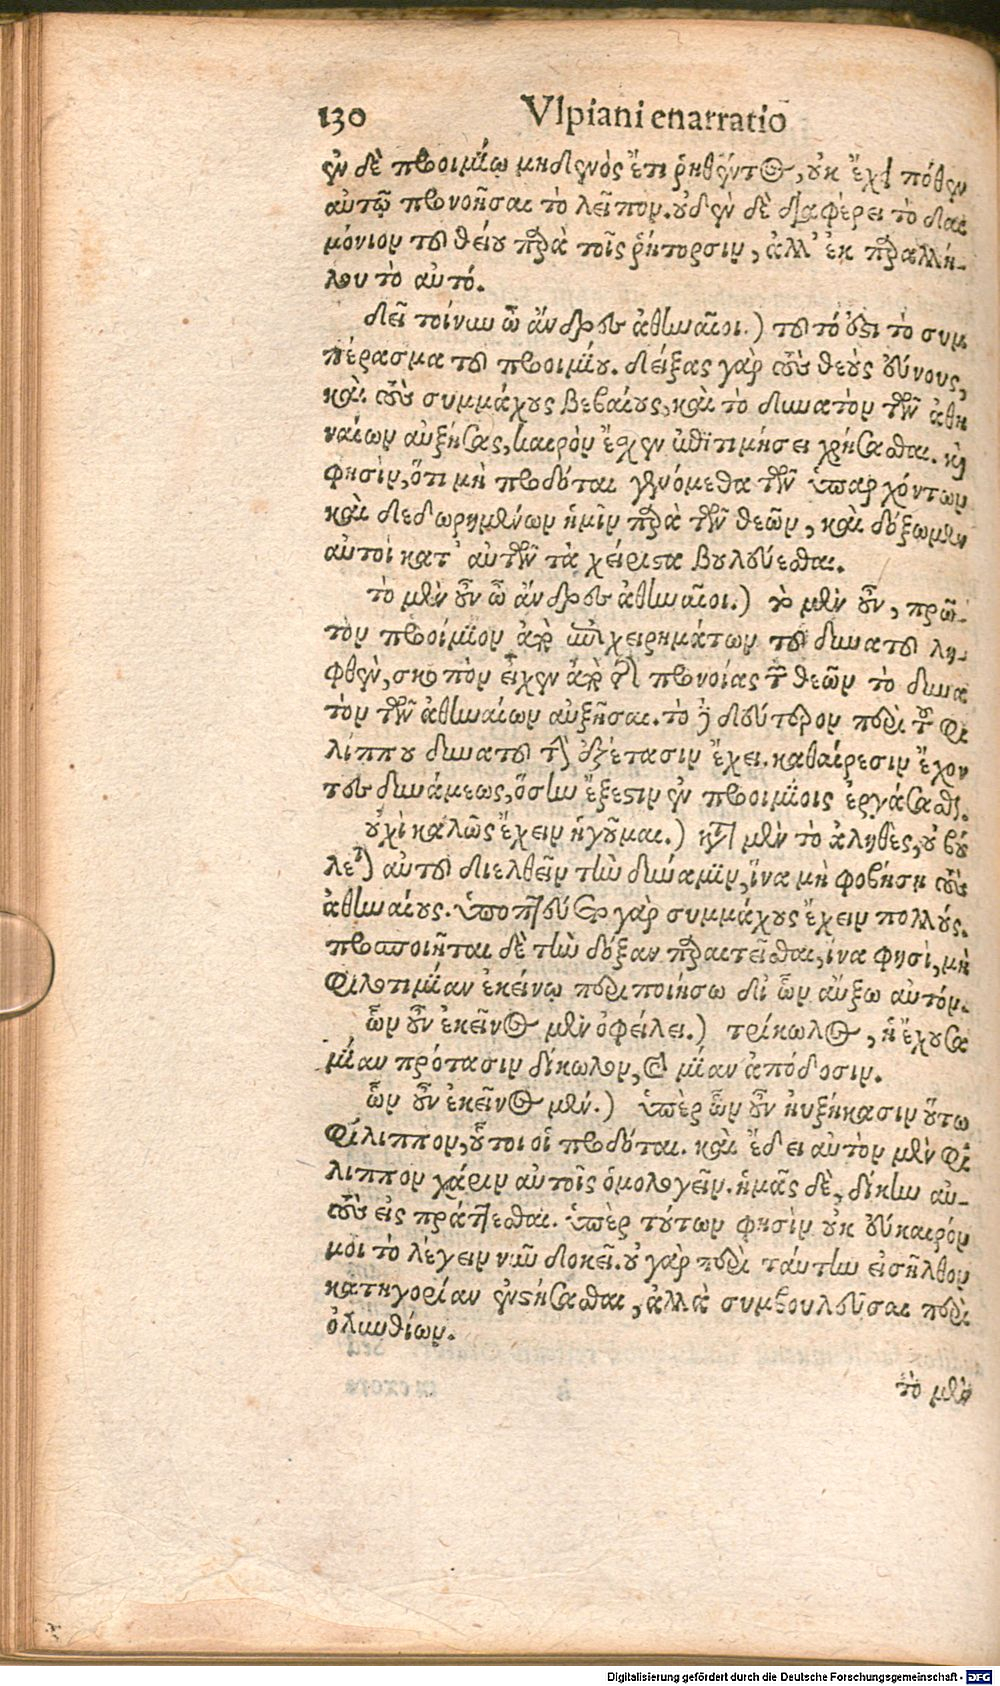 130 Vlpiani enarratiõ
ἐν δὲ προοιμίῳ μηδενὸς ἔτι ῥηθέντος, οὐκ ἔχει πόθεν
αὐτῷ προνοῆσαι τὸ λεῖπον. οὐδὲν δὲ διαφέρει τὸ δαι
μόνιον τοῦ θείου παρὰ τοῖς ῥήτορσιν, ἀλλ' ἐκ παραλλή-
λου τὸ αὐτό.
δεῖ τοίνυν ὦ ἄνδρες ἀθηναῖοι.) τοῦτό ἐστι τὸ συμ
πέρασμα τοῦ προοιμίου. δείξας γὰρ τοὺς θεοὺς εὔνους,
καὶ τοὺς συμμάχους βεβαίους, καὶ τὸ δυνατὸν τῶν ἀθη
ναίων αὐξήσας, καιρὸν ἔχεν ἐπιτιμήσει χρήσασθαι. καὶ
φησὶν, ὅτι μὴ προδόται γενόμεθα τῶν ὑπαρχόντων
καὶ δεδωρημένων ἡμῖν παρὰ τῶν θεῶν, καὶ δόξωμεν
αὐτοὶ κατ' αὐτῶν τὰ χείριστα βουλεύεσθαι.
τὸ μὲν οὖν ὦ ἄνδρες ἀθηναῖοι.) τὸ μὲν οὖν, πρῶ-
τον προοίμιον ἀπὸ ἐπιχειρημάτων τοῦ δυνατοῦ λη-
φθὲν, σκοπὸν εἶχεν ἀπὸ τῆς προνοίας τῶν θεῶν τὸ δυνα
τὸν τῶν ἀθηναίων αὐξῆσαι. τὸ δὲ δεύτερον περὶ τοῦ φι
λίππου δυνατοῦ τὴν ἐξέτασιν ἔχει. καθαίρεσιν ἔχον
τῆς δυνάμεως, ὅσην ἔξεστιν ἐν προοιμίοις ἐργάσασθαι.
οὐχὶ καλῶς ἔχειν ἡγοῦμαι.) κατὰ μὲν τὸ ἀληθὲς, οὐ βού
λεται αὐτοῦ διελθεῖν τὴν δύναμιν, ἵνα μὴ φοβήσῃ τοὺς
ἀθηναίους. ὑποπτεύεται γὰρ συμμάχους ἔχειν πολλούς.
προσποιῆται δὲ τὴν δόξαν παραιτεῖσθαι, ἵνα φησὶ, μὴ
φιλοτιμίαν ἐκείνῳ περιποιήσω δι' ὧν αὔξω αὐτόν.
ὧν οὖν ἐκεῖνος μὲν ὀφείλει.) τρίκωλος, ἡ ἔχουσα
μίαν πρότασιν δίκωλον, καὶ μίαν ἀπόδοσιν.
ὧν οὖν ἐκεῖνος μὲν.) ὑπὲρ ὧν οὖν ηὐξήκασιν οὕτω
φίλιππον, οὗτοι οἱ προδόται. καὶ ἔδει αὐτὸν μὲν φί
λιππον χάριν αὐτοῖς ὁμολογεῖν. ἡμᾶς δὲ, δίκην αὐ-
τοὺς εἰσπράττεσθαι. ὑπὲρ τούτων φησὶν οὐκ εὔκαιρόν
μοι τὸ λέγειν νῦν δοκεῖ. οὐ γὰρ περὶ ταύτην εἰσῆλθον
κατηγορίαν ἐνστήσασθαι, ἀλλὰ συμβουλεῦσαι περὶ
ὀλυνθίων.
τὸ μὲν
Digitalisierung gefördert durch die Deutsche Forschungsgemeinschaft - DFG